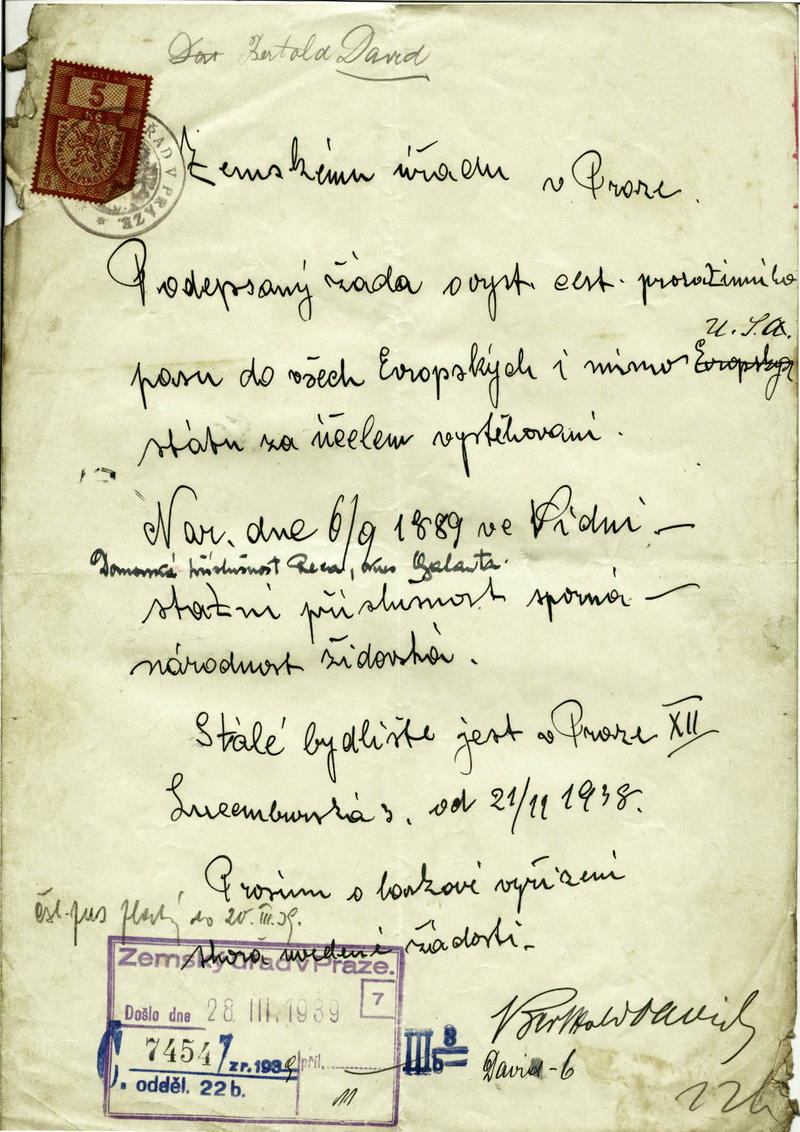 Bertold David
KOLEK
5
Kč
ÚŘAD V PRAZE
Zemskému úřadu v Praze.
Podepsaný žáda o vyst. cest. prozatimniho
U. S. A.
pasu do všech Evropských i mimo Evropskych
státu za účelem vystěhovani.
Nar. dne 6/9 1889 ve Vidni —
Domovská příslušnost, okres Galanta.
statni příslušnost sporná —
národnost židovská.
Stálé bydliště jest v Praze XII
Lucemburská 3. od 21/11 1938.
Prosim o laskavé vyřizeni
čsl. pas do 20. III. 39.
shorá uvedené žádosti.
Zemský úřad v Praze.
7
Došlo dne 28 III. 1939
Č. 74547 z r. 1939 příl.
odděl. 22 b.
11
III b 8
Berthold David
David - 6
22b